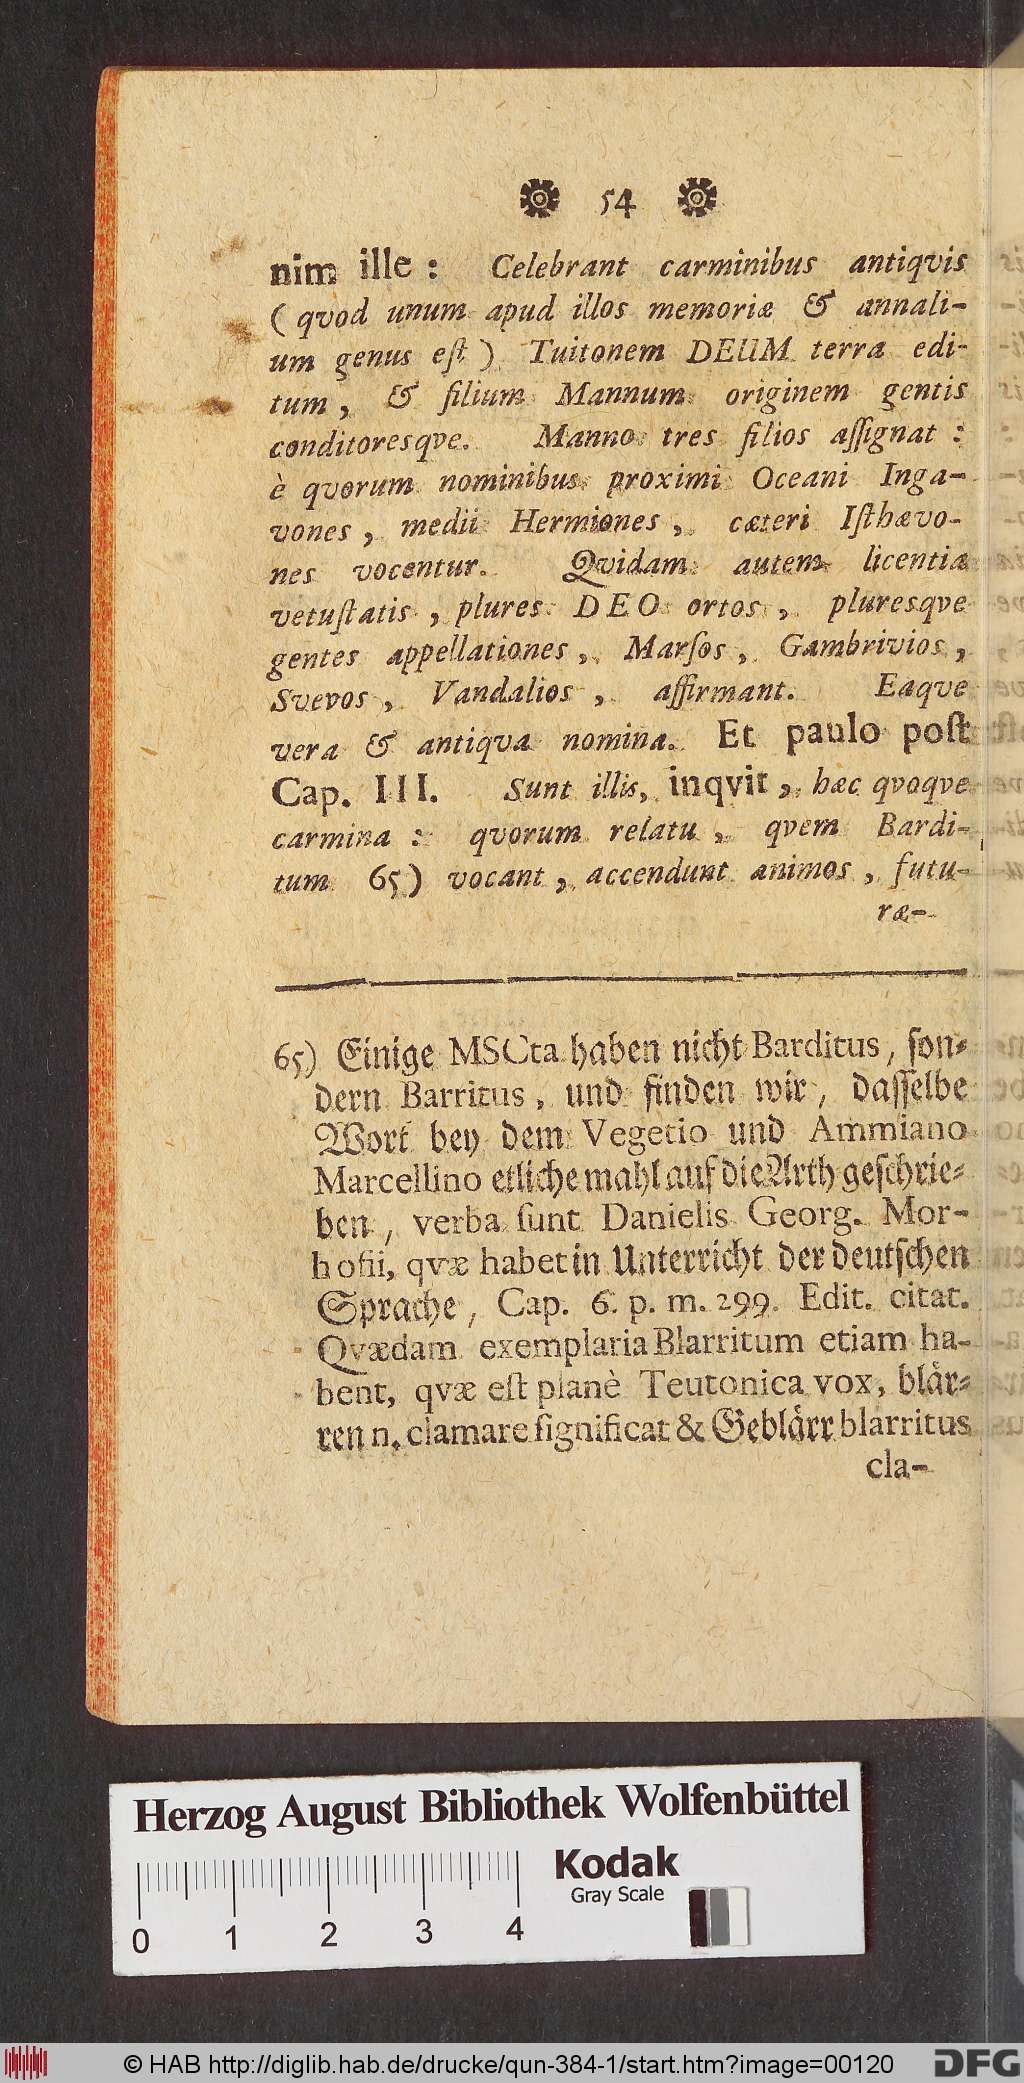 54
nim ille : Celebrant carminibus antiqvis
( qvod unum apud illos memoriæ & annali-
um genus eſt ) Tuitonem DEUM terra edi-
tum , & filium Mannum originem gentis
conditoresqve. Manno tres filios aſſignat :
è qvorum nominibus proximi Oceani Inga-
vones , medii Hermiones , cæteri Iſthævo-
nes vocentur. Qvidam autem licentia
vetuſtatis , plures DEO ortos , pluresqve
gentes appellationes , Marſos , Gambrivios ,
Svevos , Vandalios , affirmant. Eaqve
vera & antiqva nomina. Et paulo poſt
Cap. III. Sunt illis, inqvit , hæc qvoqve
carmina : qvorum relatu , qvem Bardi-
tum 65) vocant , accendunt animos , futu-
ræ-
65) Einige MSCta haben nicht Barditus, ſon-
dern Barritus, und finden wir, daſſelbe
Wort bey dem Vegetio und Ammiano
Marcellino etliche mahl auf die Arth geſchrie-
ben, verba ſunt Danielis Georg. Mor-
hofii, qvæ habet in Unterricht der deutſchen
Sprache, Cap. 6. p. m. 299. Edit. citat.
Qvædam exemplaria Blarritum etiam ha-
bent, qvæ eſt planè Teutonica vox, blaͤr-
ren n. clamare ſignificat & Geblaͤrr blarritus
cla-
Herzog August Bibliothek Wolfenbüttel
Kodak
Gray Scale
0 1 2 3 4
© HAB http://diglib.hab.de/drucke/qun-384-1/start.htm?image=00120
DFG